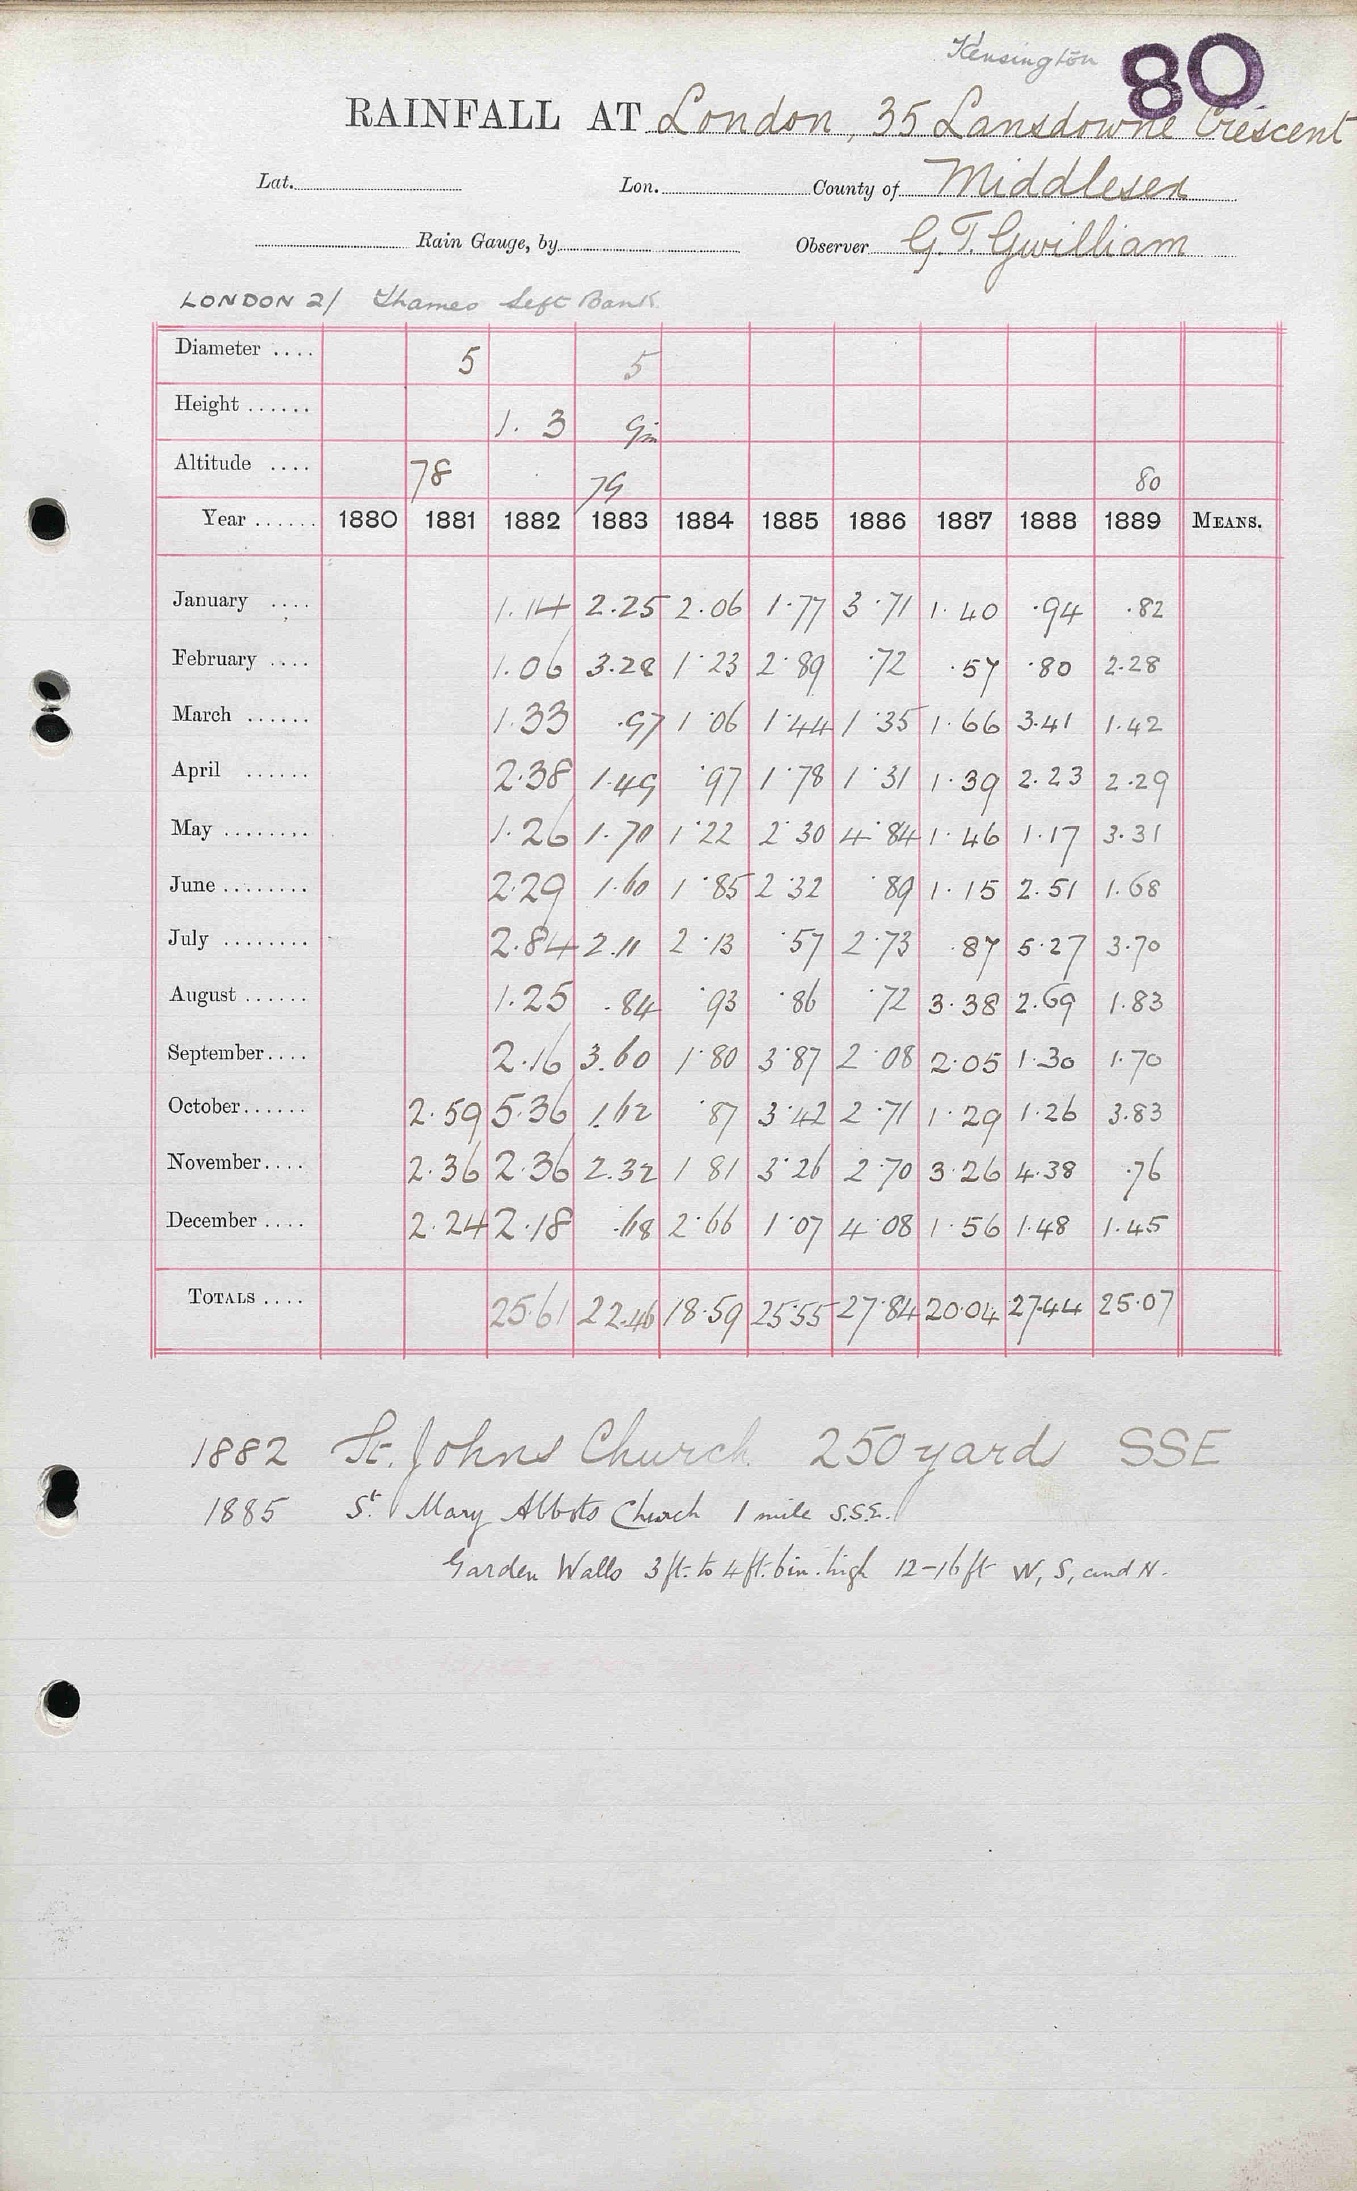 Kensington 80
RAINFALL AT London, 35 Lansdowne Crescent
Lat. Lon. County of Middlesex
Rain Gauge, by Observer G. T. Gwilliam
LONDON 2/ Thames Left Bank
Diameter .... 5 5
Height ...... 1. 3 9in
Altitude .... 78 79 80
Year ...... 1880 1881 1882 1883 1884 1885 1886 1887 1888 1889 MEANS.
January .... 1.14 2.25 2.06 1.77 3.71 1.40 .94 .82
February .... 1.06 3.28 1.23 2.89 .72 .57 .80 2.28
March ...... 1.33 .97 1.06 1.44 1.35 1.66 3.41 1.42
April ...... 2.38 1.49 .97 1.78 1.31 1.39 2.23 2.29
May ........ 1.26 1.70 1.22 2.30 4.84 1.46 1.17 3.31
June ........ 2.29 1.60 1.85 2.32 .89 1.15 2.51 1.68
July ........ 2.84 2.11 2.13 .57 2.73 .87 5.27 3.70
August ...... 1.25 .84 .93 .86 .72 3.38 2.69 1.83
September.... 2.16 3.60 1.80 3.87 2.08 2.05 1.30 1.70
October...... 2.59 5.36 1.62 .87 3.42 2.71 1.29 1.26 3.83
November.... 2.36 2.36 2.32 1 81 3.26 2.70 3.26 4.38 .76
December .... 2.24 2.18 .68 2.66 1.07 4.08 1.56 1.48 1.45
TOTALS .... 25.61 22.46 18.59 25.55 27.84 20.04 27.44 25.07
1882 St. Johns Church. 250 yards SSE
1885 St. Mary Abbots Church 1 mile S.S.E.
Garden Walls 3 ft. to 4 ft. 6 in. high 12-16 ft W, S, and N.